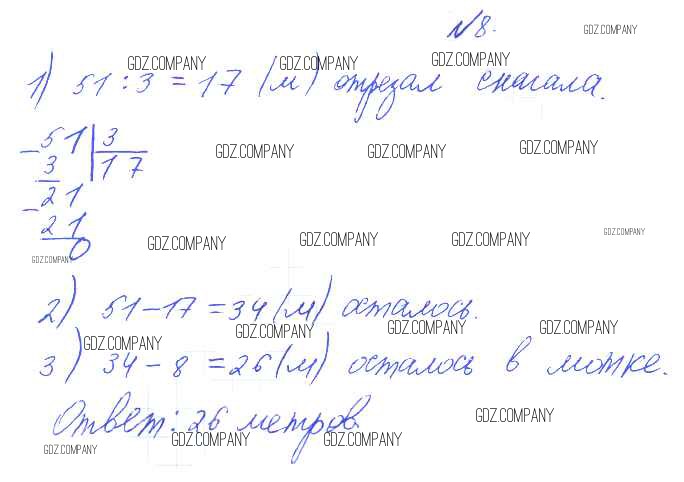 №8.
GDZ.COMPANY
GDZ.COMPANY GDZ.COMPANY GDZ.COMPANY
1) 51 : 3 = 17 (м) отрезал сначала.
51 | 3
3 | 17
GDZ.COMPANY GDZ.COMPANY GDZ.COMPANY
21
21
0
GDZ.COMPANY GDZ.COMPANY GDZ.COMPANY GDZ.COMPANY
GDZ.COMPANY
2) 51 - 17 = 34 (м) осталось.
GDZ.COMPANY GDZ.COMPANY GDZ.COMPANY GDZ.COMPANY
3) 34 - 8 = 26 (м) осталось в мотке.
Ответ: 26 метров.
GDZ.COMPANY
GDZ.COMPANY GDZ.COMPANY GDZ.COMPANY